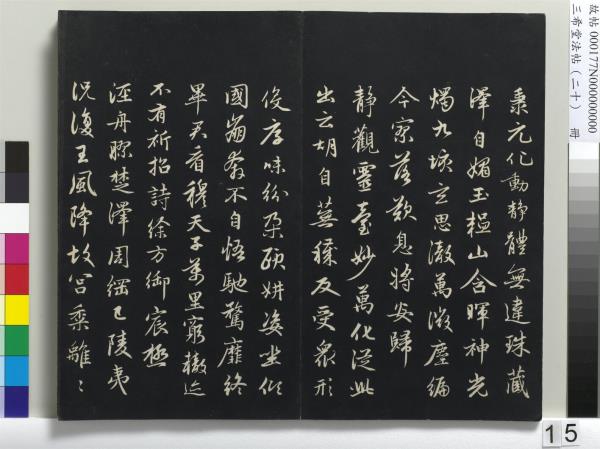 故帖 000177N000000000
三希堂法帖（二十） 冊
秉元化動靜體無違珠藏
澤自媚玉韞山含暉神光
燭九垓玄思徹萬微塵編
今寥落歎息將安歸
靜觀靈臺妙萬化從此
出云胡自蕪穢反受衆形
役厚味紛朵頤妍姿坐傾
國崩奔不自悟馳騖靡終
畢君看穆天子萬里窮轍迹
不有祈招詩徐方御宸極
涇舟膠楚澤周綱已陵夷
況復王風降故宮黍離〻
15